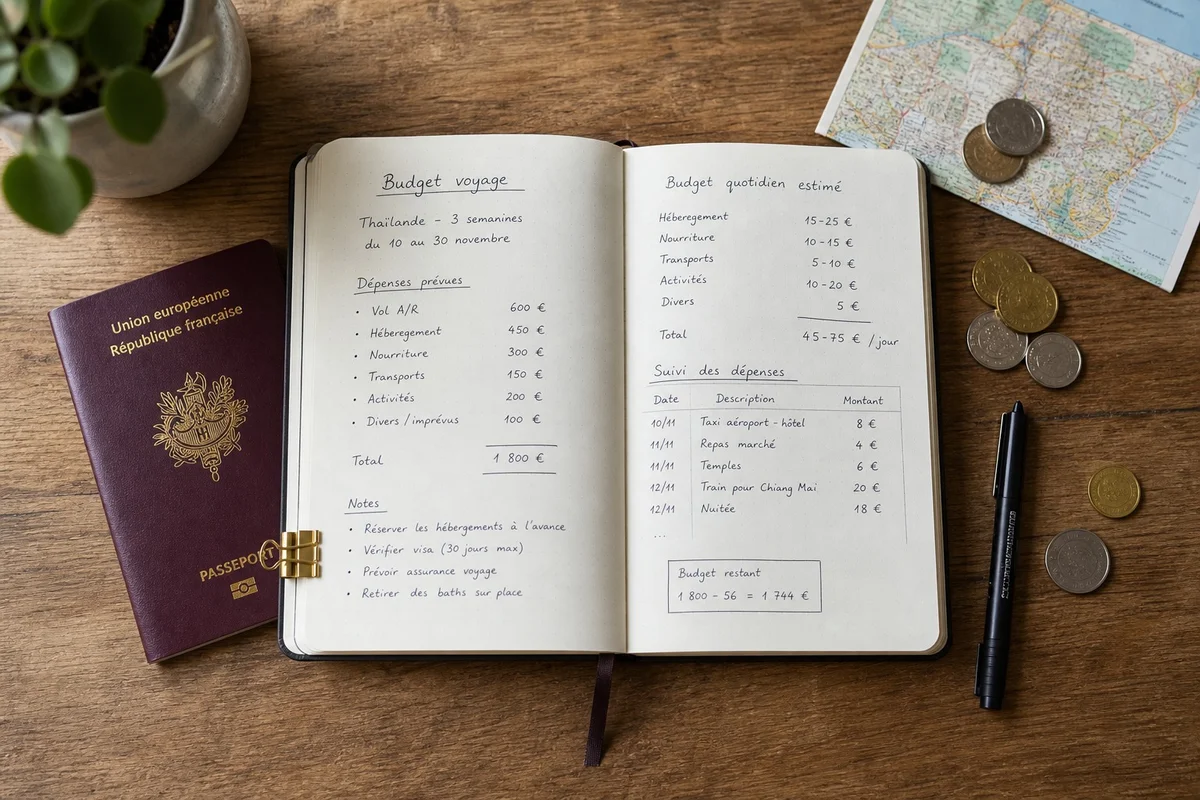 Union européenne
République française
PASSEPORT
Budget voyage
Thaïlande - 3 semanines
du 10 au 30 novembre
Dépenses prévues
• Vol A/R 600 €
• Héberegement 450 €
• Nourriture 300 €
• Transports 150 €
• Activités 200 €
• Divers / imprévus 100 €
Total 1 800 €
Notes
• Réserver les hébergements à l'avance
• Vérifier visa (30 jours max)
• Prévoir assurance voyage
• Retirer des baths sur place
Budget quotidien estimé
Héberegement 15-25 €
Nourriture 10-15 €
Transports 5-10 €
Activités 10-20 €
Divers 5 €
Total 45-75 € /jour
Suivi des dépenses
Date Description Montant
10/11 Taxi aéroport - hôtel 8 €
11/11 Repas marché 4 €
11/11 Temples 6 €
12/11 Train pour Chiang Mai 20 €
12/11 Nuitée 18 €
...
Budget restant
1 800 - 56 = 1 744 €